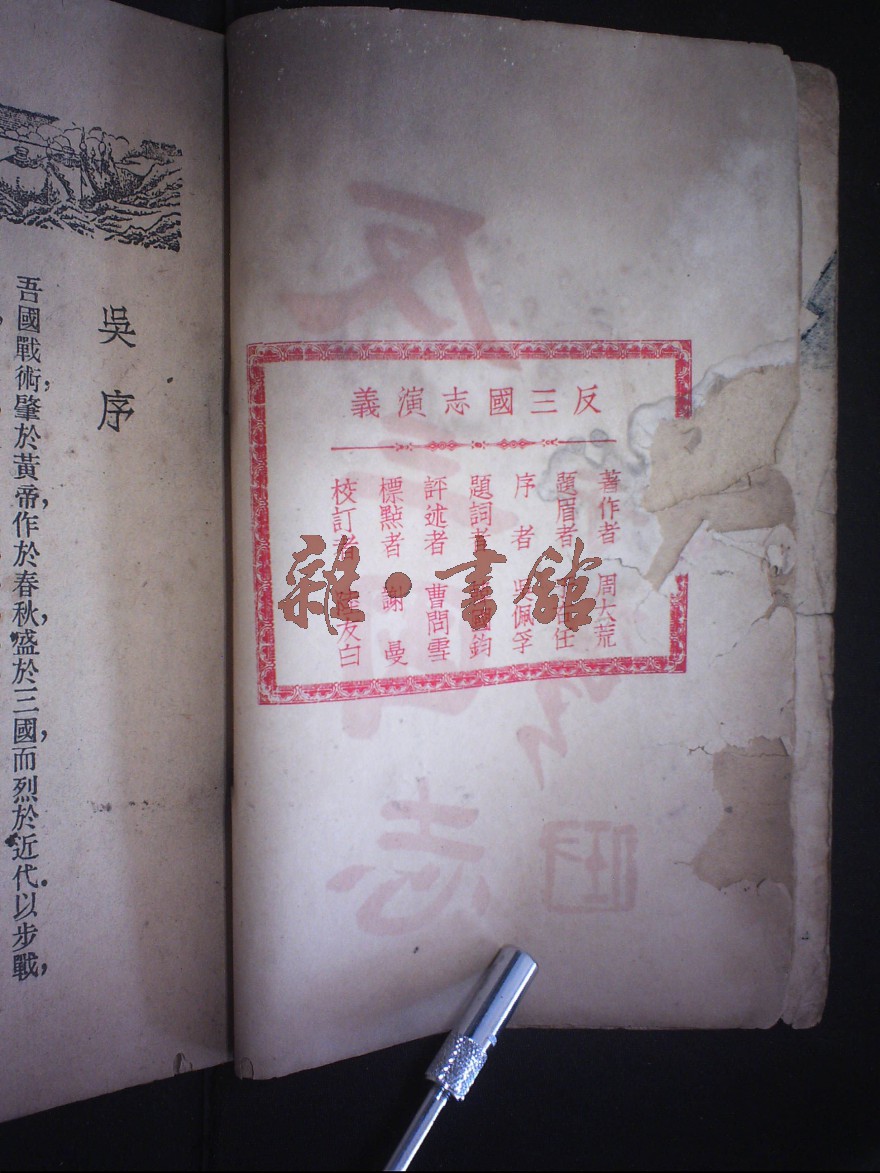 反三國志演義
著作者 周大荒
題眉者 任
序者 吳佩孚
題詞者 國鈞
評述者 曹問雪
標點者 謝曼
校訂者 陸友白
雜·書館
反三國志
吳序
吾國戰術,肇於黃帝,作於春秋,盛於三國,而烈於近代。以步戰,